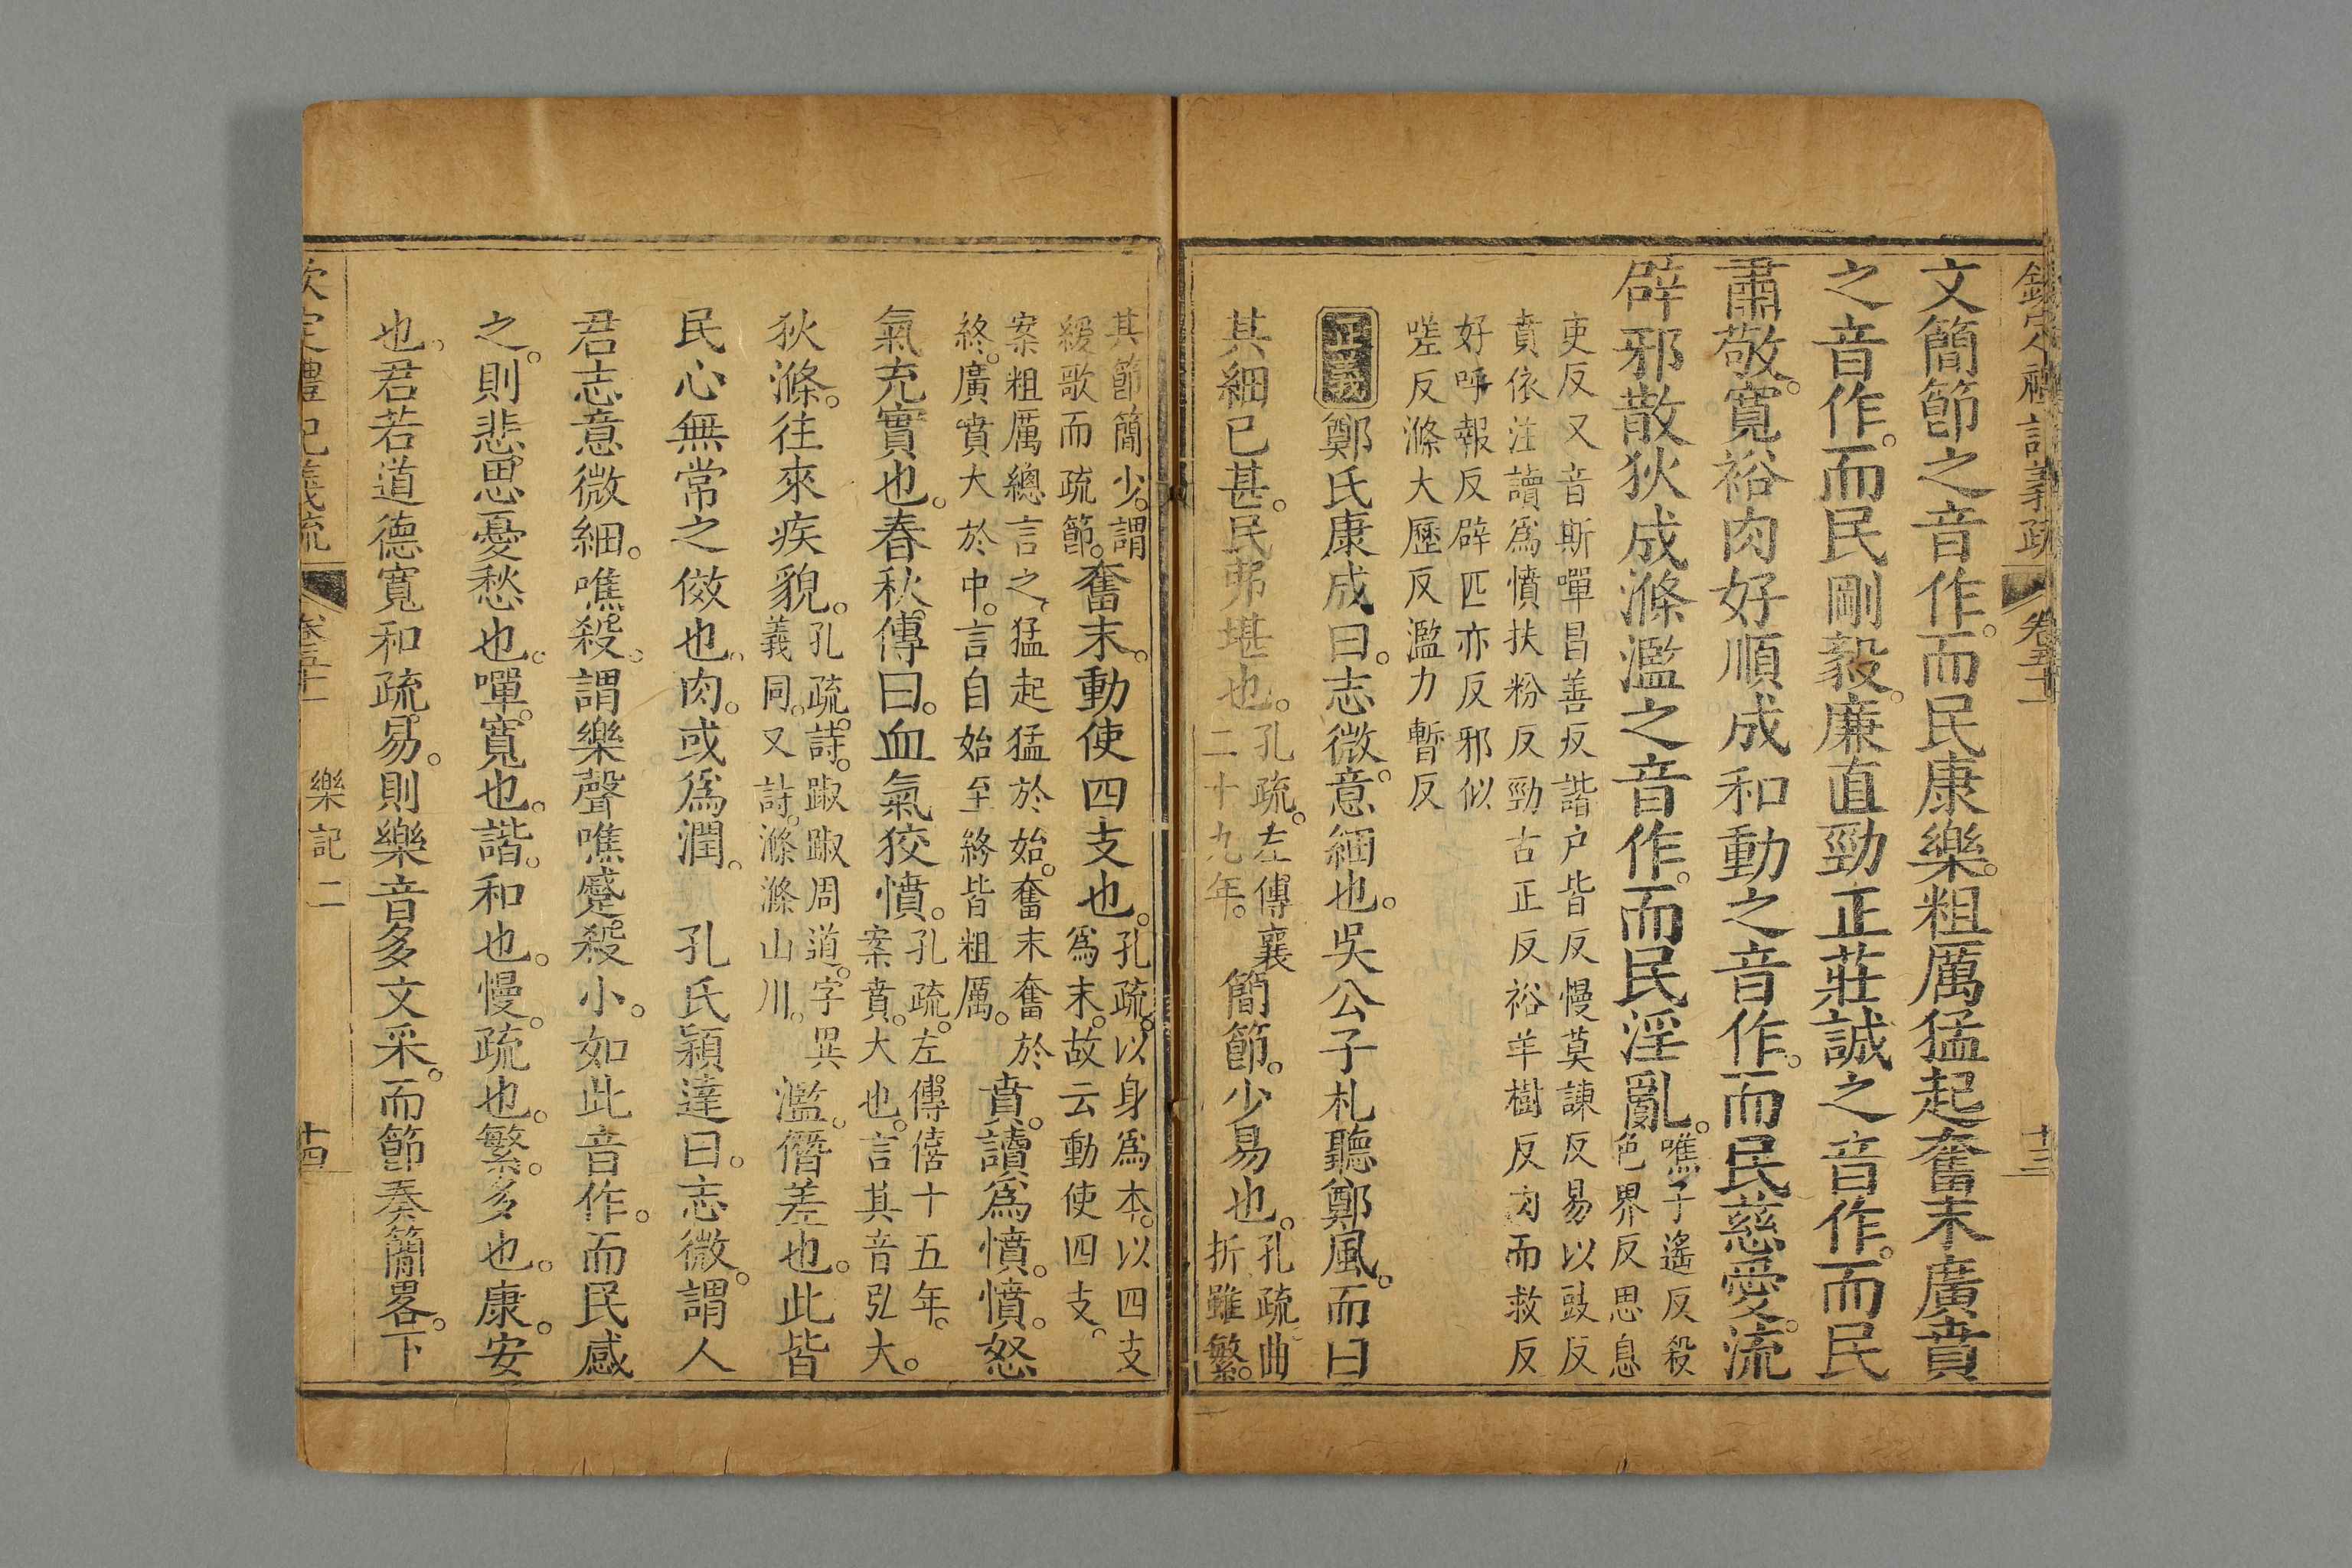 文簡節之音作。而民康樂。粗厲猛起奮末廣賁
之音作。而民剛毅。廉直勁正莊誠之音作。而民
肅敬。寬裕肉好順成和動之音作。而民慈愛。流
辟邪散狄成滌濫之音作。而民淫亂。
噍子遙反殺
色界反思息
吏反又音斯嘽昌善反諧户皆反慢莫諫反易以豉反
賁依注讀爲憤扶粉反勁古正反裕羊樹反肉而救反
好呼報反辟匹亦反邪似
嗟反滌大歷反濫力暫反
正義鄭氏康成曰。志微。意細也。吳公子札聽鄭風。而曰
其細已甚。民弗堪也。
孔疏。左傳襄
二十九年。
簡節。少易也。
孔疏。曲
折雖繁。
其節簡少。謂
緩歌而疏節。
奮末。動使四支也。
孔疏。以身爲本。以四支
爲末。故云動使四支。
案粗厲總言之。猛起猛於始。奮末奮於
終。廣賁大於中。言自始至終皆粗厲。
賁。讀爲憤。憤。怒
氣充實也。春秋傳曰。血氣狡憤。
孔疏。左傳僖十五年。
案賁。大也。言其音弘大。
狄滌。往來疾貌。
孔疏。詩。踧踧周道。字異
義同。又詩。滌滌山川。
濫。僭差也。此皆
民心無常之傚也。肉。或爲潤。 孔氏穎達曰。志微。謂人
君志意微細。噍殺。謂樂聲噍蹙殺小。如此音作。而民感
之。則悲思憂愁也。嘽。寬也。諧。和也。慢。疏也。繁。多也。康。安
也。君若道德寬和疏易。則樂音多文采。而節奏簡畧。下
欽定禮記義疏 卷五十一 樂記二 十四